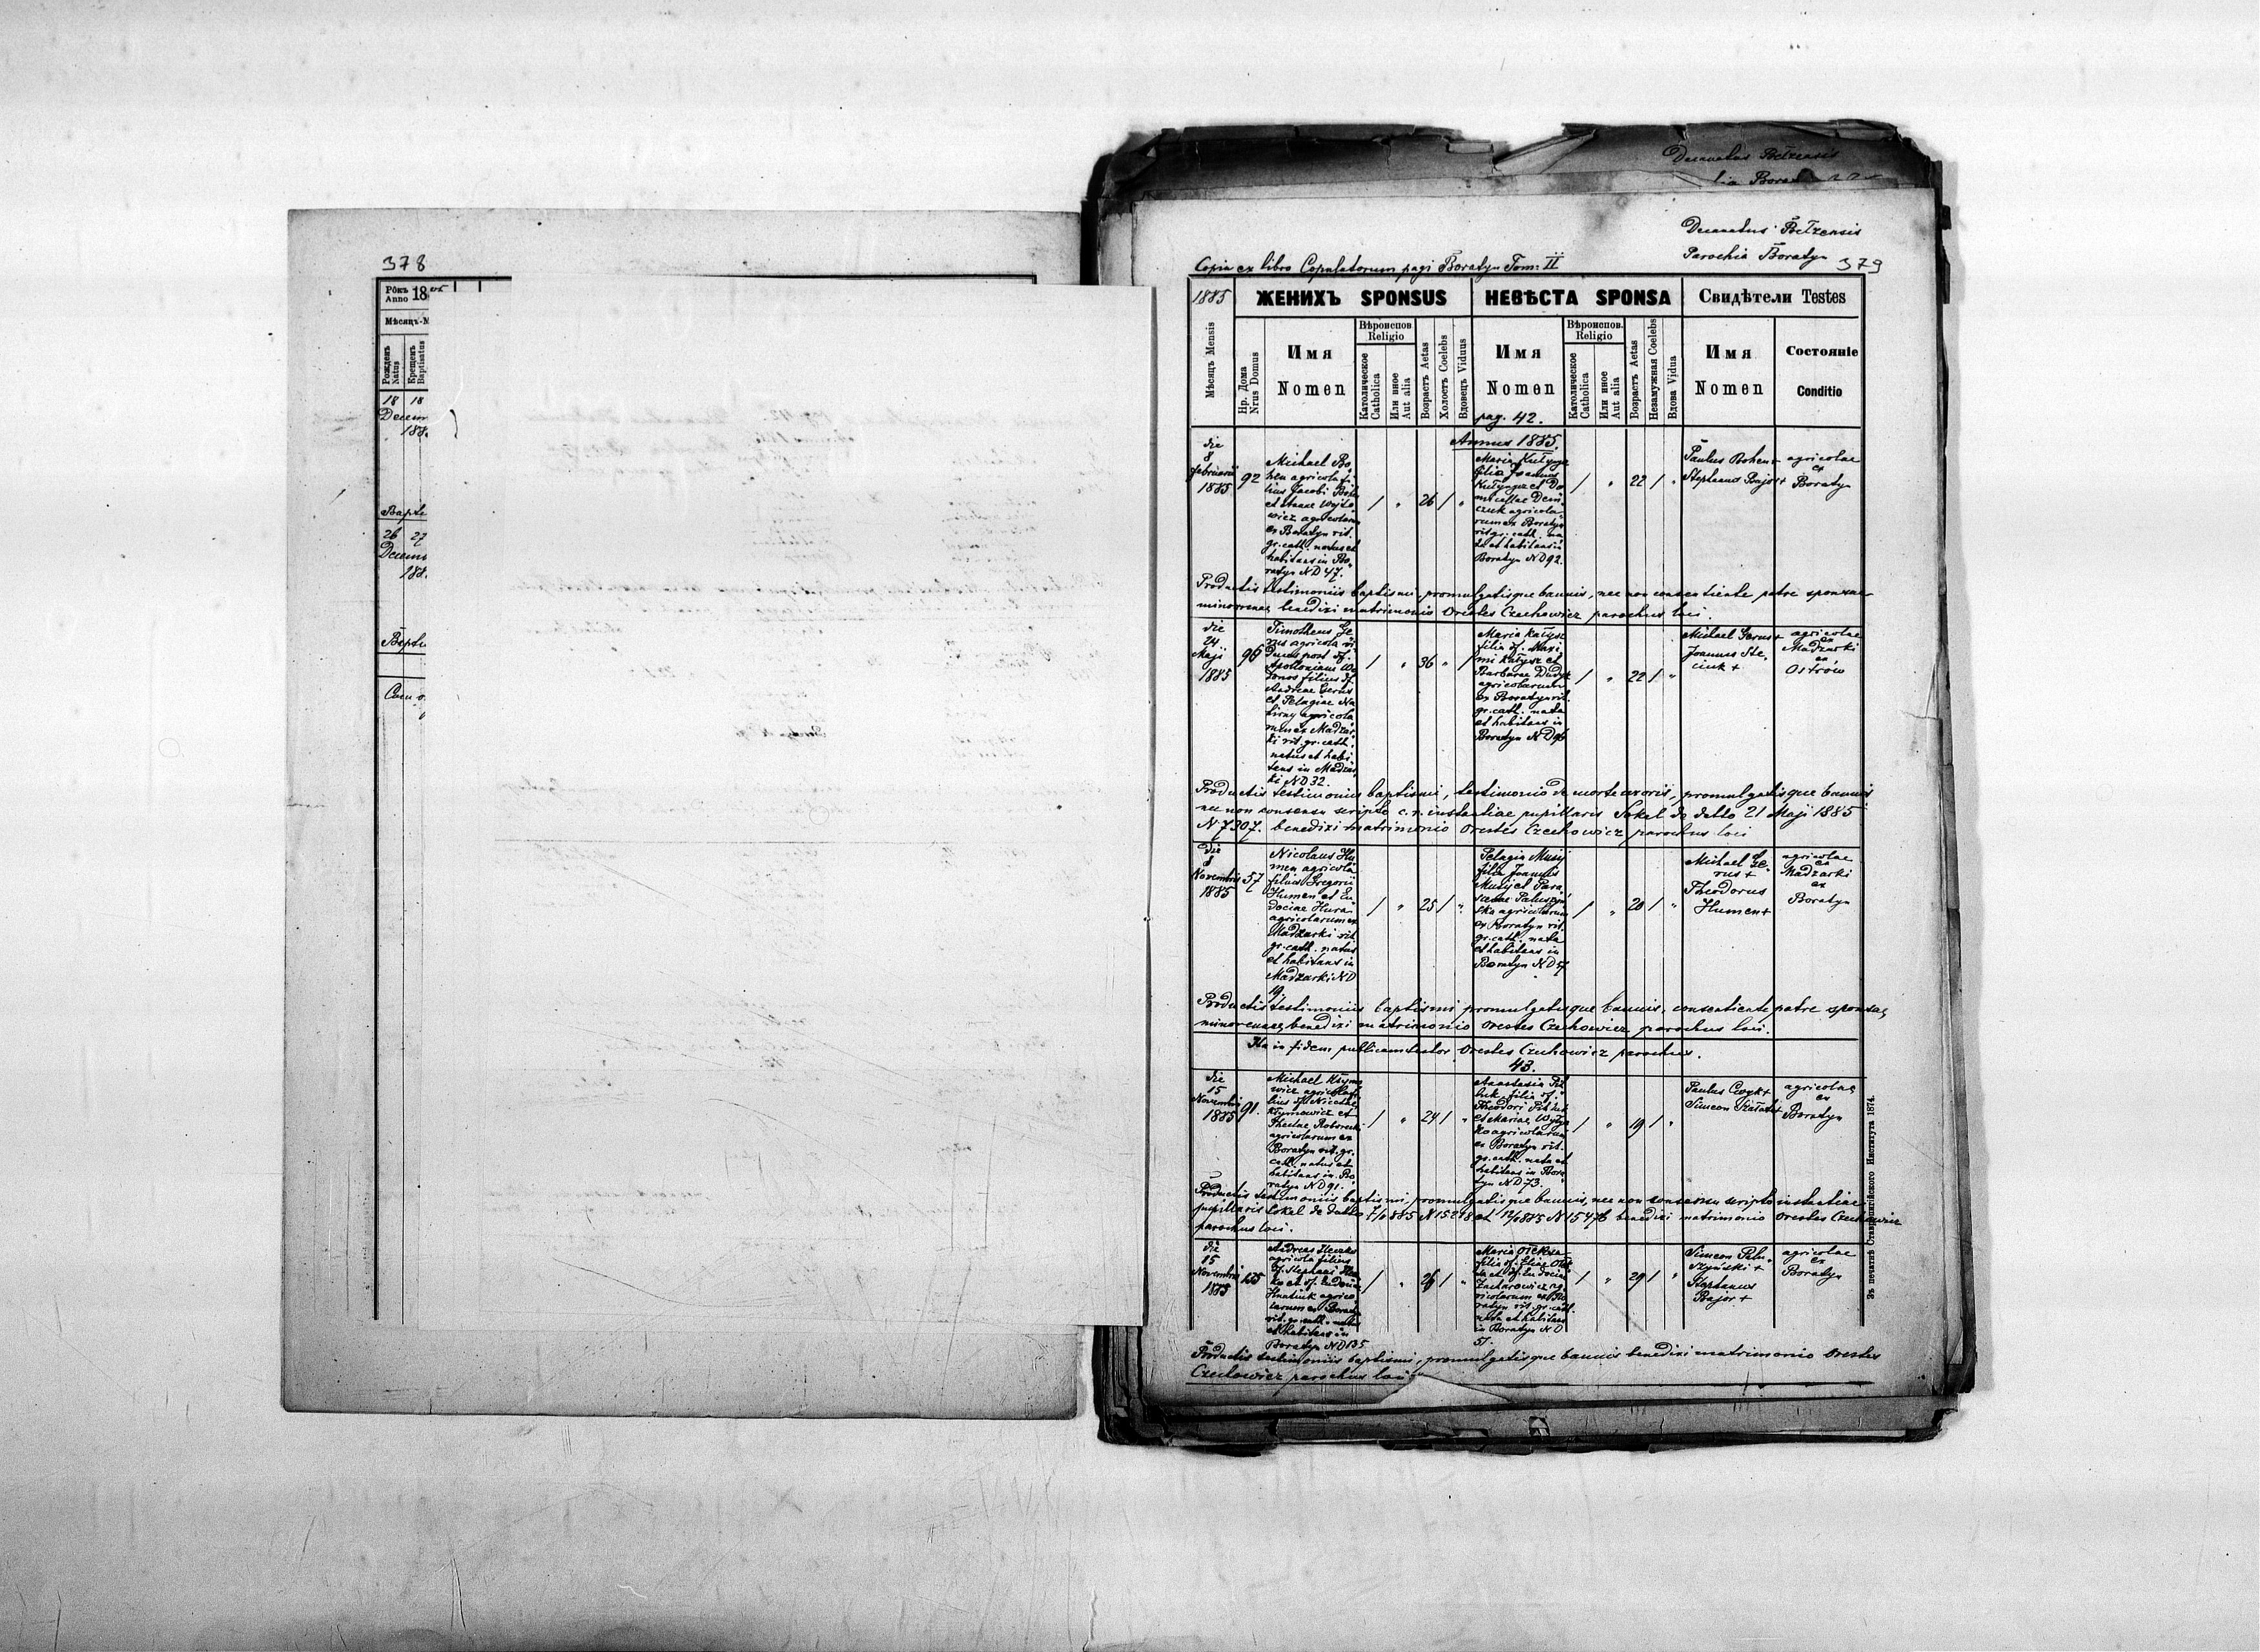 Decanatus Bełzensis
378
Рôкъ
Anno 18
Мѣсяцъ-M
Рожденъ
Natus
Крещенъ
Baptisatus
18 18
Decem
188
Bapti
26 27
Decem
188
Bapti
Decanatus Bełzensis
Parochia Boratyn
379
Copia ex libro Copulatorum pagi Boratyn Tom: II
1885
ЖЕНИХЪ SPONSUS
НЕВѢСТА SPONSA
Свидѣтели Testes
Мѣсяцъ Mensis
Нр. Дома
Nrus Domus
Имя
Nomen
Вѣроиспов.
Religio
Католическое
Catholica
Или иное
Aut alia
Возрастъ Aetas
Холостъ Coelebs
Вдовецъ Viduus
Имя
Nomen
pag. 42.
Вѣроиспов.
Religio
Католическое
Catholica
Или иное
Aut alia
Возрастъ Aetas
Незамужная Coelebs
Вдова Vidua
Имя
Nomen
Состояніе
Conditio
Annus 1885
die
8
februarii
1885
92
Michael Bo
hen agricola fi
lius Jacobi Bohen
et Annae Wojto
wicz agricolarum
ex Boratyn rit.
gr. cath. natus et
habitans in Bo
ratyn ND 47.
/ " 26 / "
Maria
filia Joannis
et Do
micellae Dem
czuk agricola
rum ex Boratyn
rit. gr. cath. na
ta et habitans in
Boratyn ND 92.
/ " 22 / "
Paulus Bohen +
Stephanus Bajor +
agricolae
ex
Boratyn
Productis testimoniis baptismi, promulgatisque bannis, nec non consentiente patre sponsae
minorennae, benedixi matrimonio Orestes Czechowicz parochus loci.
die
24
Maji
1885
96
Timotheus Ge
rus agricola vi
duus post df.
Apolloniam
filius df.
Andreae Gerus
et Pelagiae
agricola
rum ex Madzar
ki rit. gr. cath.
natus et habi
tans in Madzar
ki ND 32.
/ " 36 " /
Maria Kałysz
filia df. Maxi
mi Kałysz et
Barbarae
agricolarum
ex Boratyn rit.
gr. cath. nata
et habitans in
Boratyn ND 96
/ " 22 / "
Michael Gerus +
Joannes Ste
ciuk +
agricolae
ex
Madzarki
ex
Ostrów
Productis testimoniis baptismi, testimonio de morte uxoris, promulgatisque bannis
nec non consensu scripto c. r. instantiae pupillaris Sokal de datto 21 Maji 1885
N 7307. benedixi matrimonio Orestes Czechowicz parochus loci
die
8
Novembris
1885
57
Nicolaus Hu
men agricola
filius Gregorii
Humen et Eu
dociae Hura
agricolarum ex
Madzarki rit.
gr. cath. natus
et habitans in
Madzarki ND
19.
/ " 25 / "
Pelagia Musij
filia Joannis
Musij et Para
scevae
agricolarum
ex Boratyn rit.
gr. cath. nata
et habitans in
Boratyn ND 57
/ " 20 / "
Michael Ge
rus +
Theodorus
Humen +
agricolae
ex
Madzarki
ex
Boratyn
Productis testimoniis baptismi promulgatisque bannis, consentiente patre sponsae,
minorennae, benedixi matrimonio Orestes Czechowicz parochus loci.
Ita in fidem publicam testor Orestes Czechowicz parochus.
43.
die
15
Novembris
1885
91.
Michael Klymo
wicz agricola fi
lius df. Nicetae
Klymowicz et
Theclae
agricolarum ex
Boratyn rit. gr.
cath. natus et
habitans in Bo
ratyn ND 91.
/ " 24 / "
Anastasia
filia df.
Theodori
et Mariae
agricolarum
ex Boratyn rit.
gr. cath. nata et
habitans in Bora
tyn ND 73.
/ " 19 / "
Paulus
Simeon
agricolae
ex
Boratyn
Productis testimoniis baptismi, promulgatisque bannis, nec non consensu scripto instantiae
pupillaris Sokal de datto 885 N 15278 et 885 N 15476 benedixi matrimonio Orestes Czechowicz
parochus loci.
die
15
Novembris
1885
135
Andreas
agricola filius
df. Stephani
et df. Eudociae
agrico
larum ex Boratyn
rit. gr. cath. natus
et habitans in
Boratyn ND 135
/ " 26 / "
Maria
filia df. Eliae
et df. Eudociae
Zacharowicz ag
ricolarum ex Bo
ratyn rit. gr. cath.
nata et habitans
in Boratyn ND
57.
/ " 29 / "
Simeon Palu
szyński +
Stephanus
Bajor +
agricolae
ex
Boratyn
Productis testimoniis baptismi, promulgatisque bannis benedixi matrimonio Orestes
Czechowicz parochus loci
Зъ печатнѣ Ставропигійского Института 1874.